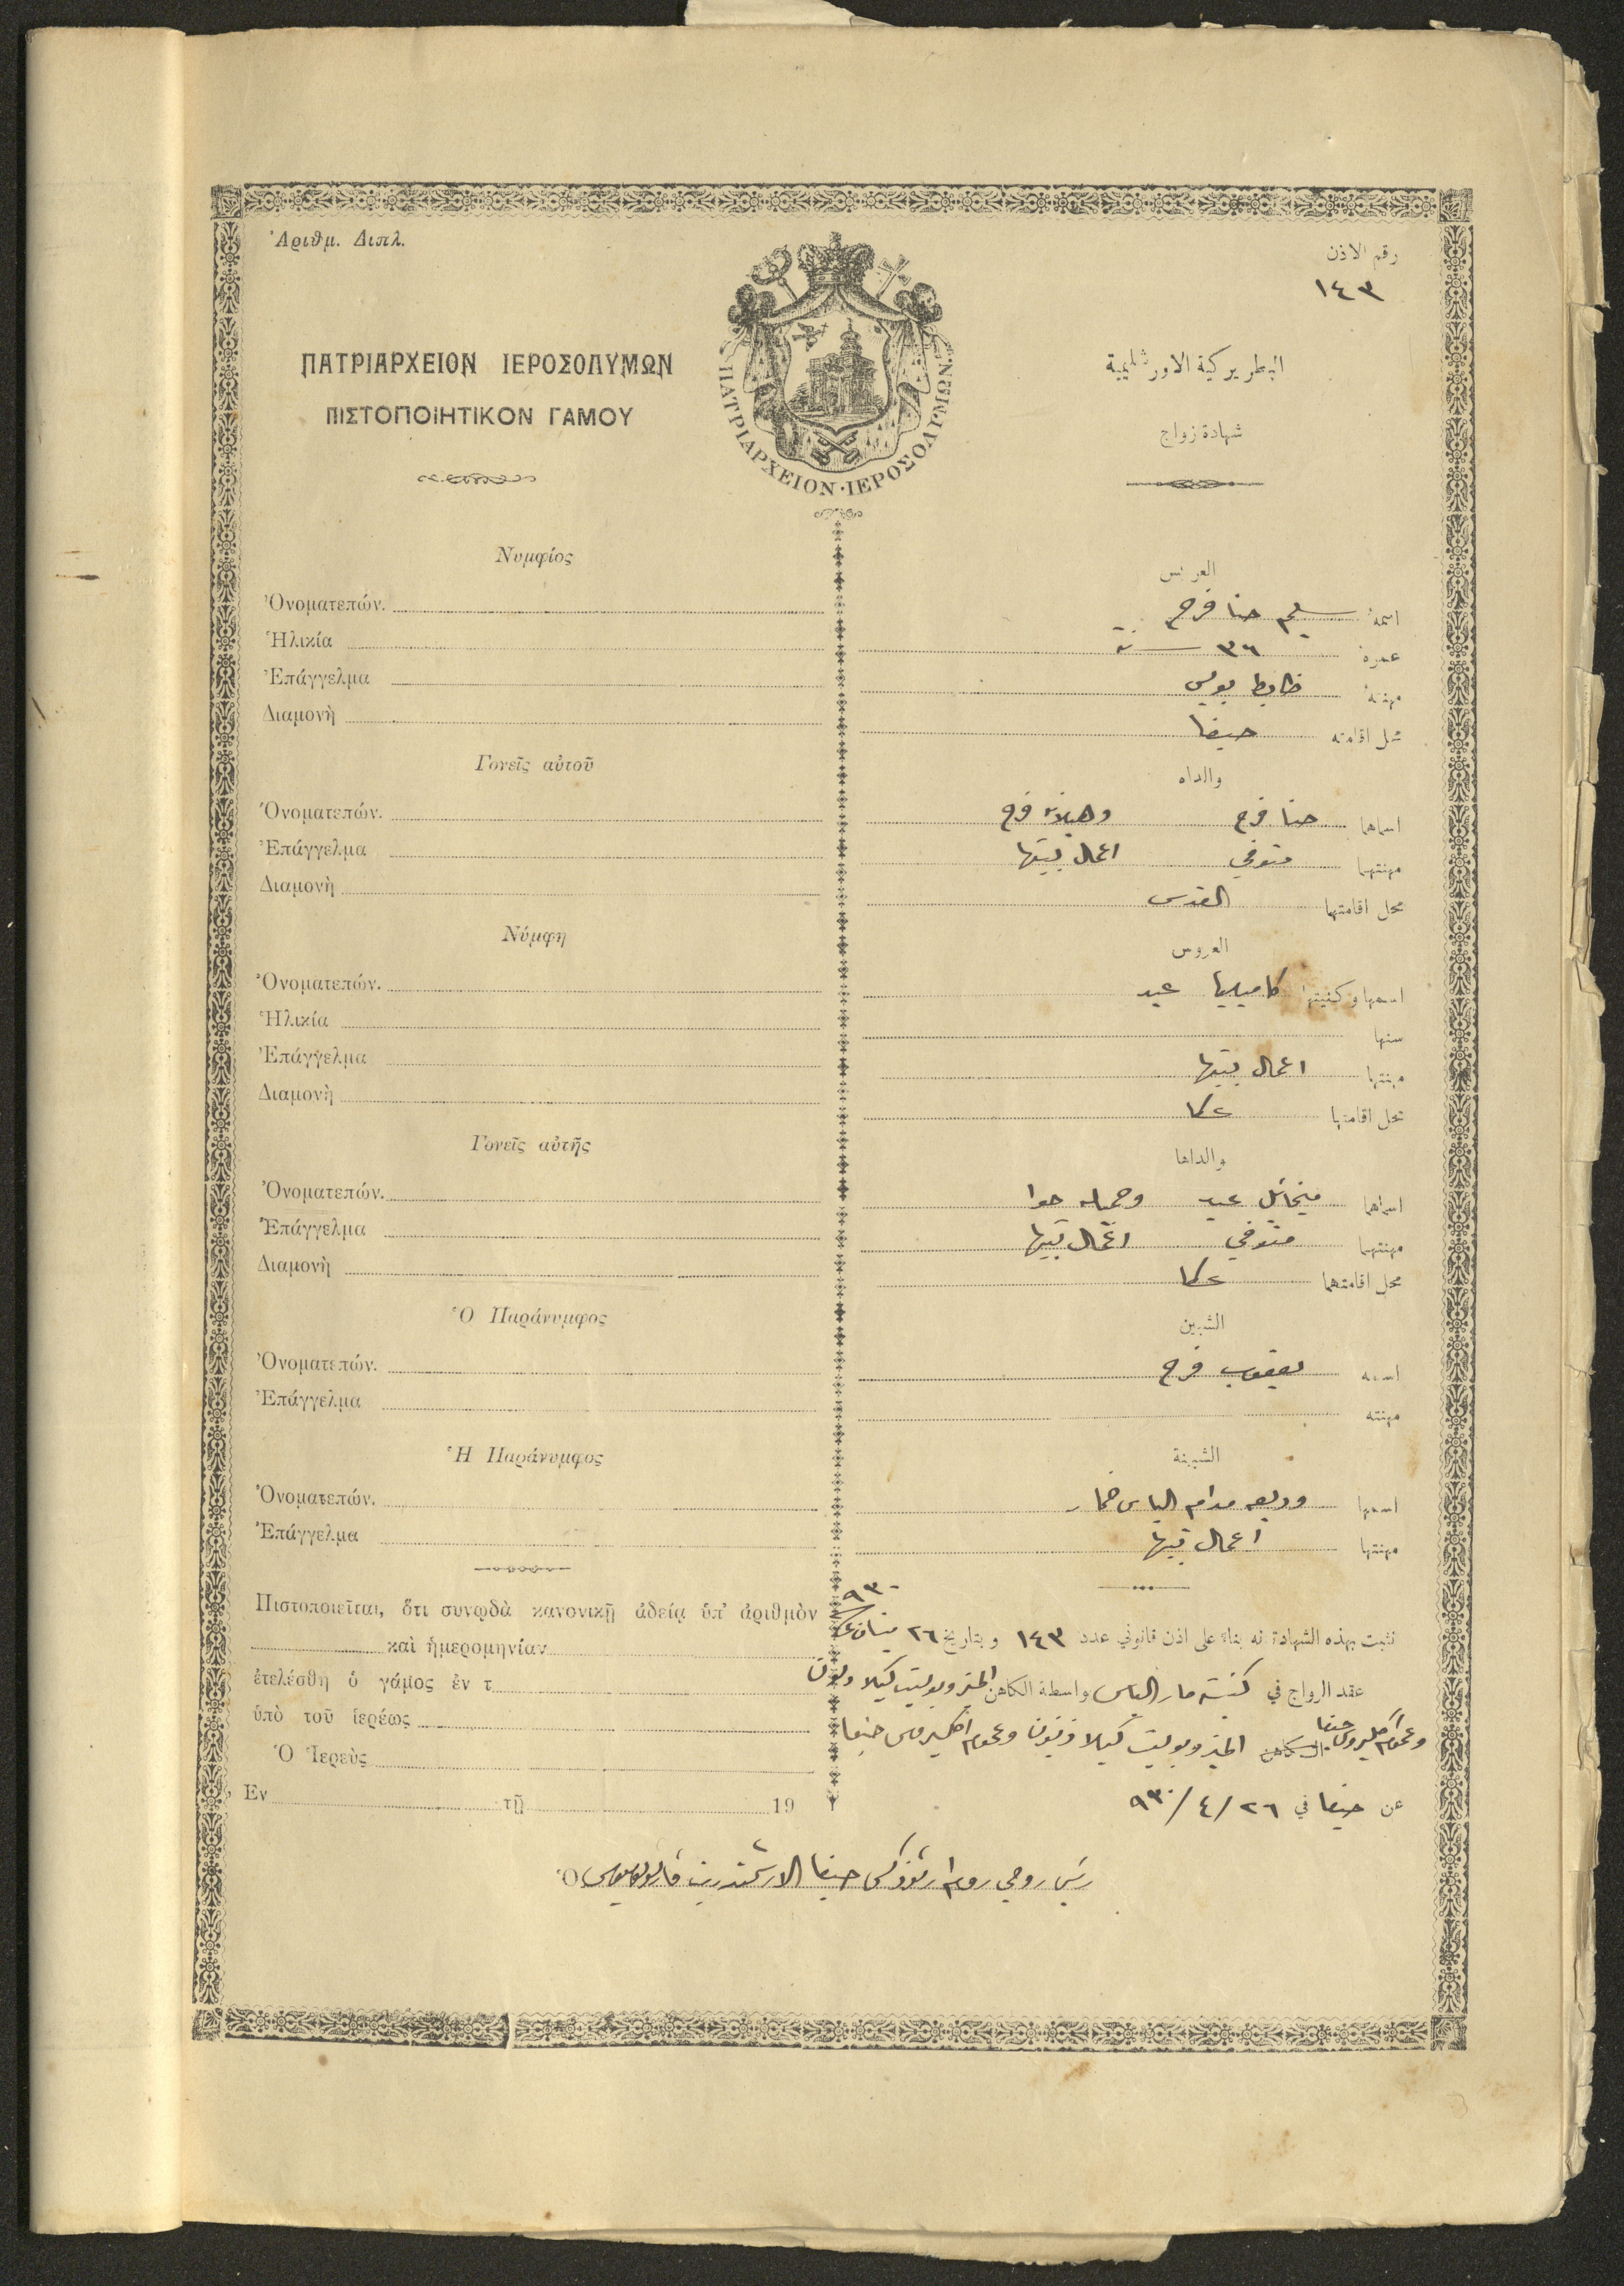 Ἀριθμ. Διπλ.
رقم الاذن
١٤٣
ΠΑΤΡΙΑΡΧΕΙΟΝ ΙΕΡΟΣΟΛΥΜΩΝ
البطريركية الاورشليمية
ΠΙΣΤΟΠΟΙΗΤΙΚΟΝ ΓΑΜΟΥ
شهادة زواج
ΠΑΤΡΙΑΡΧΕΙΟΝ·ΙΕΡΟΣΟΛΥΜΩΝ
Νυμφίος
العريس
Ὀνοματεπών.
اسمهُ سليم حنا فرح
Ἡλικία
عمرهُ ٣٦ سنة
Ἐπάγγελμα
مهنتهُ ضابط بوليس
Διαμονὴ
محل اقامته حيفا
Γονεῖς αὐτοῦ
والداه
Ὀνοματεπών.
اسماهما حنا فرح وهيلانه فرح
Ἐπάγγελμα
مهنتهما متوفي اعمال بيتها
Διαμονὴ
محل اقامتهما القدس
Νύμφη
العروس
Ὀνοματεπών.
اسمها وكنيتها كاميليا عيد
Ἡλικία
سنها
Ἐπάγγελμα
مهنتها اعمال بيتها
Διαμονὴ
محل اقامتها عكا
Γονεῖς αὐτῆς
والداها
Ὀνοματεπών.
اسماهما ميخائيل عيد وجميله حوا
Ἐπάγγελμα
مهنتهما متوفي اعمال بيتها
Διαμονὴ
محل اقامتهما عكا
Ὁ Παράνυμφος
الشبين
Ὀνοματεπών.
اسمه يعقوب فرح
Ἐπάγγελμα
مهنته
Ἡ Παράνυμφος
الشبينة
Ὀνοματεπών.
اسمها وديعه مدام الياس خمار
Ἐπάγγελμα
مهنتها اعمال بيتها
Πιστοποιεῖται, ὅτι συνῳδὰ κανονικῇ ἀδείᾳ ὑπ' ἀριθμὸν
καὶ ἡμερομηνίαν
ἐτελέσθη ὁ γάμος ἐν τ
ὑπὸ τοῦ ἱερέως
Ὁ Ἱερεὺς
Ἐν τῇ 19
نثبت بهذه الشهادة انه بناء على اذن قانوني عدد ١٤٣ و بتاريخ ٢٦ نيسان سنة ٩٣٠
عقد الزواج في كنيسة مار الياس واسطة الكاهن المتروبوليت كيلاديون
وعموم اكليروس حيفا
الكاهن المتروبوليت كيلاديون وعموم اكليروس حيفا
عن حيفا في ٢٦/٤/٩٣٠
رئيس روحي روم ارثوذكس حيفا الارشمندريت